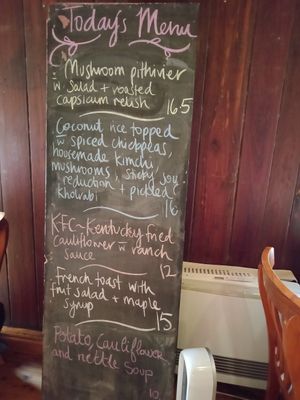 Today's Menu
Mushroom pithivier
w̄ salad + roasted
capsicum relish 16.5
Coconut rice topped
w̄ spiced chickpeas,
housemade kimchi,
mushrooms, sticky soy
reduction + pickled
kholrabi 16
KFC ~ Kentucky fried
Cauliflower w̄ ranch
sauce 12
French toast with
fruit salad + maple
syrup 15
Potato, Cauliflower
and nettle Soup
10